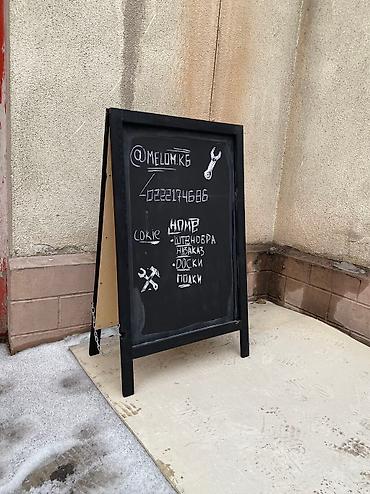 @MELOM.KG
0222174686
HOME
COKIE
• ШТВНОБРА
НЗАКАЗ
• ДОСКИ
ПОЛКИ